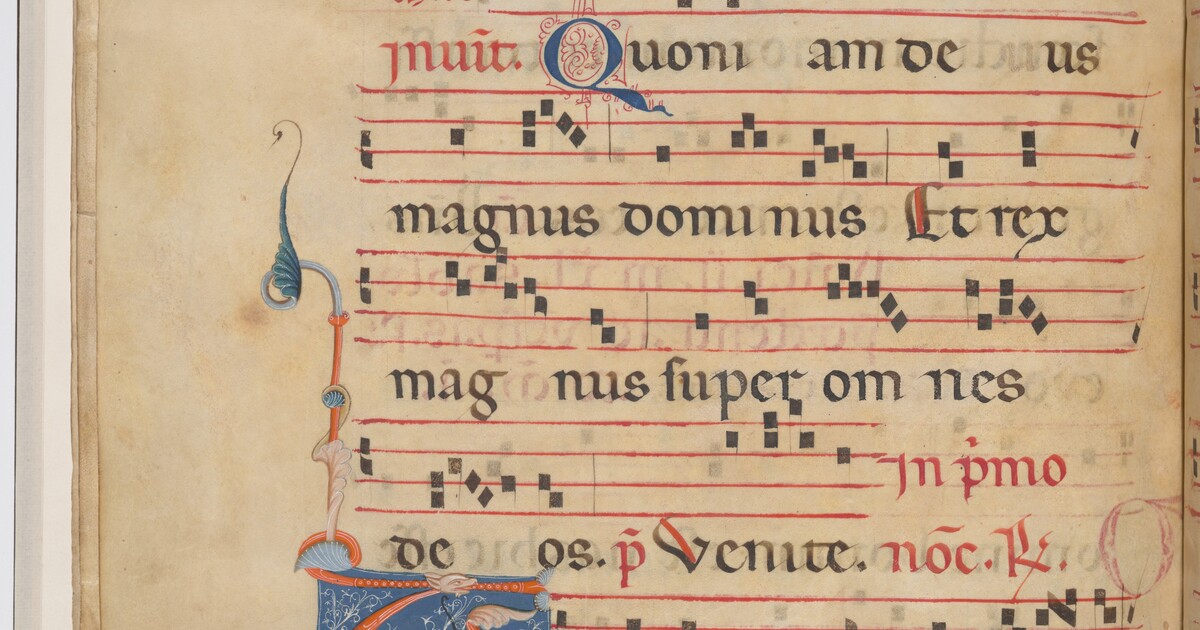 jnuit̄. Quoni am de us
magnus domi nus Et rex
mag nus super om nes
In p̄mo
de os. p̄ Venite. noc̄. R.